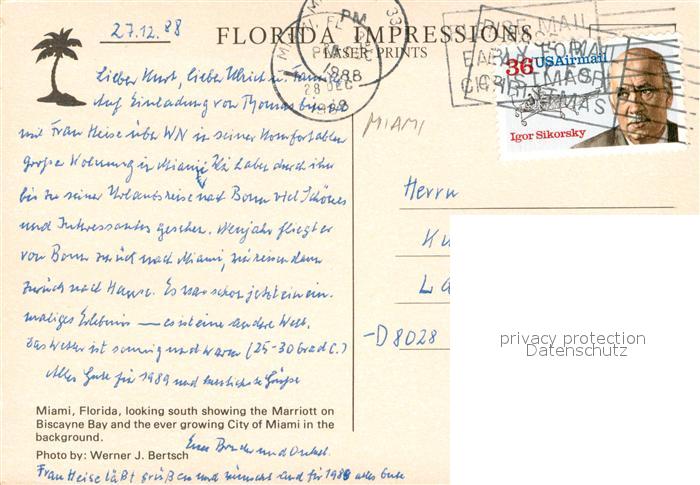 27.12.88
FLORIDA IMPRESSIONS
LASER PRINTS
Lieber Kurt, lieber Ulrich u. Familie
Auf Einladung von Thomas bin ich
mit Frau Heise über WN in seiner komfortablen
großen Wohnung in Miami. Ich habe durch ihn
bis zu seiner Urlaubsreise nach Bonn viel Schönes
und Interessantes gesehen. Neujahr fliegt er
von Bonn zurück nach Miami, wir reisen dann
zurück nach Hause. Es war schon jetzt ein ein-
maliges Erlebnis — es ist eine andere Welt.
Das Wetter ist sonnig und warm (25-30 Grad C.)
Alles Gute für 1989 und herzlichste Grüße
Euer Bruder und Onkel.
Frau Heise läßt grüßen und wünscht auch für 1989 alles Gute
Miami, Florida, looking south showing the Marriott on
Biscayne Bay and the ever growing City of Miami in the
background.
Photo by: Werner J. Bertsch
PM
28 DEC
1988
MAIL
EARLY FOR
CHRISTMAS
36 USAirmail
Igor Sikorsky
MIAMI
Herrn
Ku
La
-D 8028
privacy protection
Datenschutz